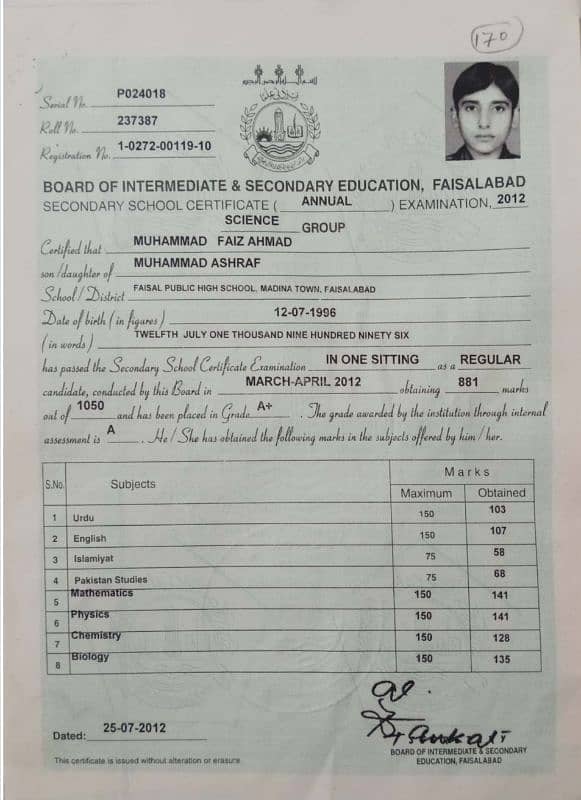 170
Serial No. P024018
Roll No. 237387
Registration No. 1-0272-00119-10
BOARD OF INTERMEDIATE & SECONDARY EDUCATION, FAISALABAD
SECONDARY SCHOOL CERTIFICATE ( ANNUAL ) EXAMINATION, 2012
SCIENCE GROUP
Certified that MUHAMMAD FAIZ AHMAD
son/daughter of MUHAMMAD ASHRAF
School/District FAISAL PUBLIC HIGH SCHOOL, MADINA TOWN, FAISALABAD
Date of birth (in figures) 12-07-1996
(in words) TWELFTH JULY ONE THOUSAND NINE HUNDRED NINETY SIX
has passed the Secondary School Certificate Examination IN ONE SITTING as a REGULAR
candidate, conducted by this Board in MARCH-APRIL 2012 obtaining 881 marks
out of 1050 and has been placed in Grade A+ . The grade awarded by the institution through internal
assessment is A . He/She has obtained the following marks in the subjects offered by him/her.
S.No. Subjects Marks
Maximum Obtained
1 Urdu 150 103
2 English 150 107
3 Islamiyat 75 58
4 Pakistan Studies 75 68
5 Mathematics 150 141
6 Physics 150 141
7 Chemistry 150 128
8 Biology 150 135
Dated: 25-07-2012
BOARD OF INTERMEDIATE & SECONDARY
EDUCATION, FAISALABAD
This certificate is issued without alteration or erasure